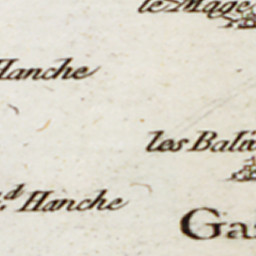 le Mage
Hanche
les Bali
d Hanche
Gas